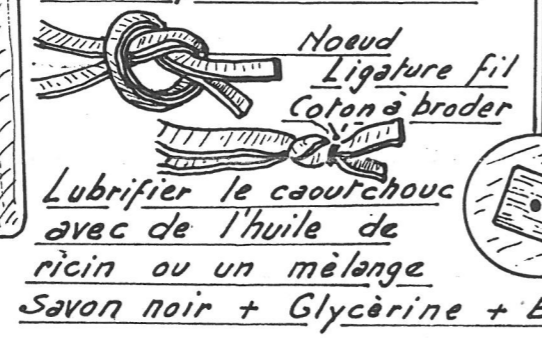 Noeud
Ligature fil
Coton à broder
Lubrifier le caoutchouc
avec de l'huile de
ricin ou un mèlange
Savon noir + Glycèrine +